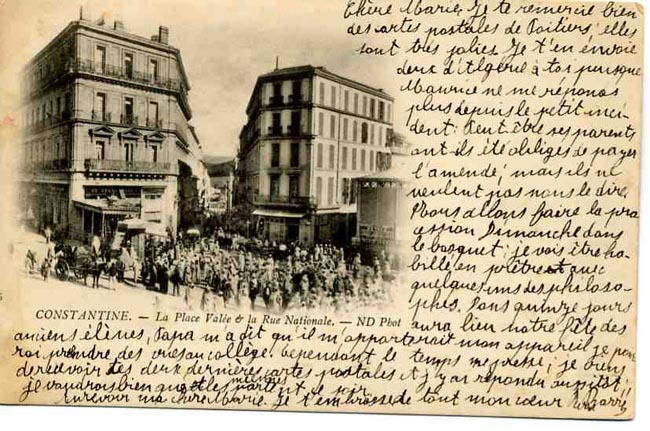 Chère Marie, Je te remercie bien
des cartes postales de Poitiers, elles
sont très jolies. Je t'en envoie
deux d'Algérie à toi puisque
Maurice ne me réponds
plus depuis le petit inci-
dent: Peut être ses parents
ont ils été obligés de payer
l'amende, mais ils ne
veulent pas nous le dire.
Nous allons faire la pro
cession Dimanche dans
le bosquet: je vais être ha-
billé en prêtre avec
quelques uns des philoso-
phes. Dans quinze jours
aura lieu notre fête des
CONSTANTINE. — La Place Valée & la Rue Nationale. — ND Phot
anciens élèves, Papa m'a dit qu'il m'apporterait mon appareil, je pour
rai prendre des vues au collège. Cependant le temps me presse; je viens
de recevoir tes deux dernières cartes postales et j'y ai répondu aussitôt;
je voudrais bien qu'elles partent ce soir.
au revoir ma chère Marie. Je t'embrasse de tout mon cœur